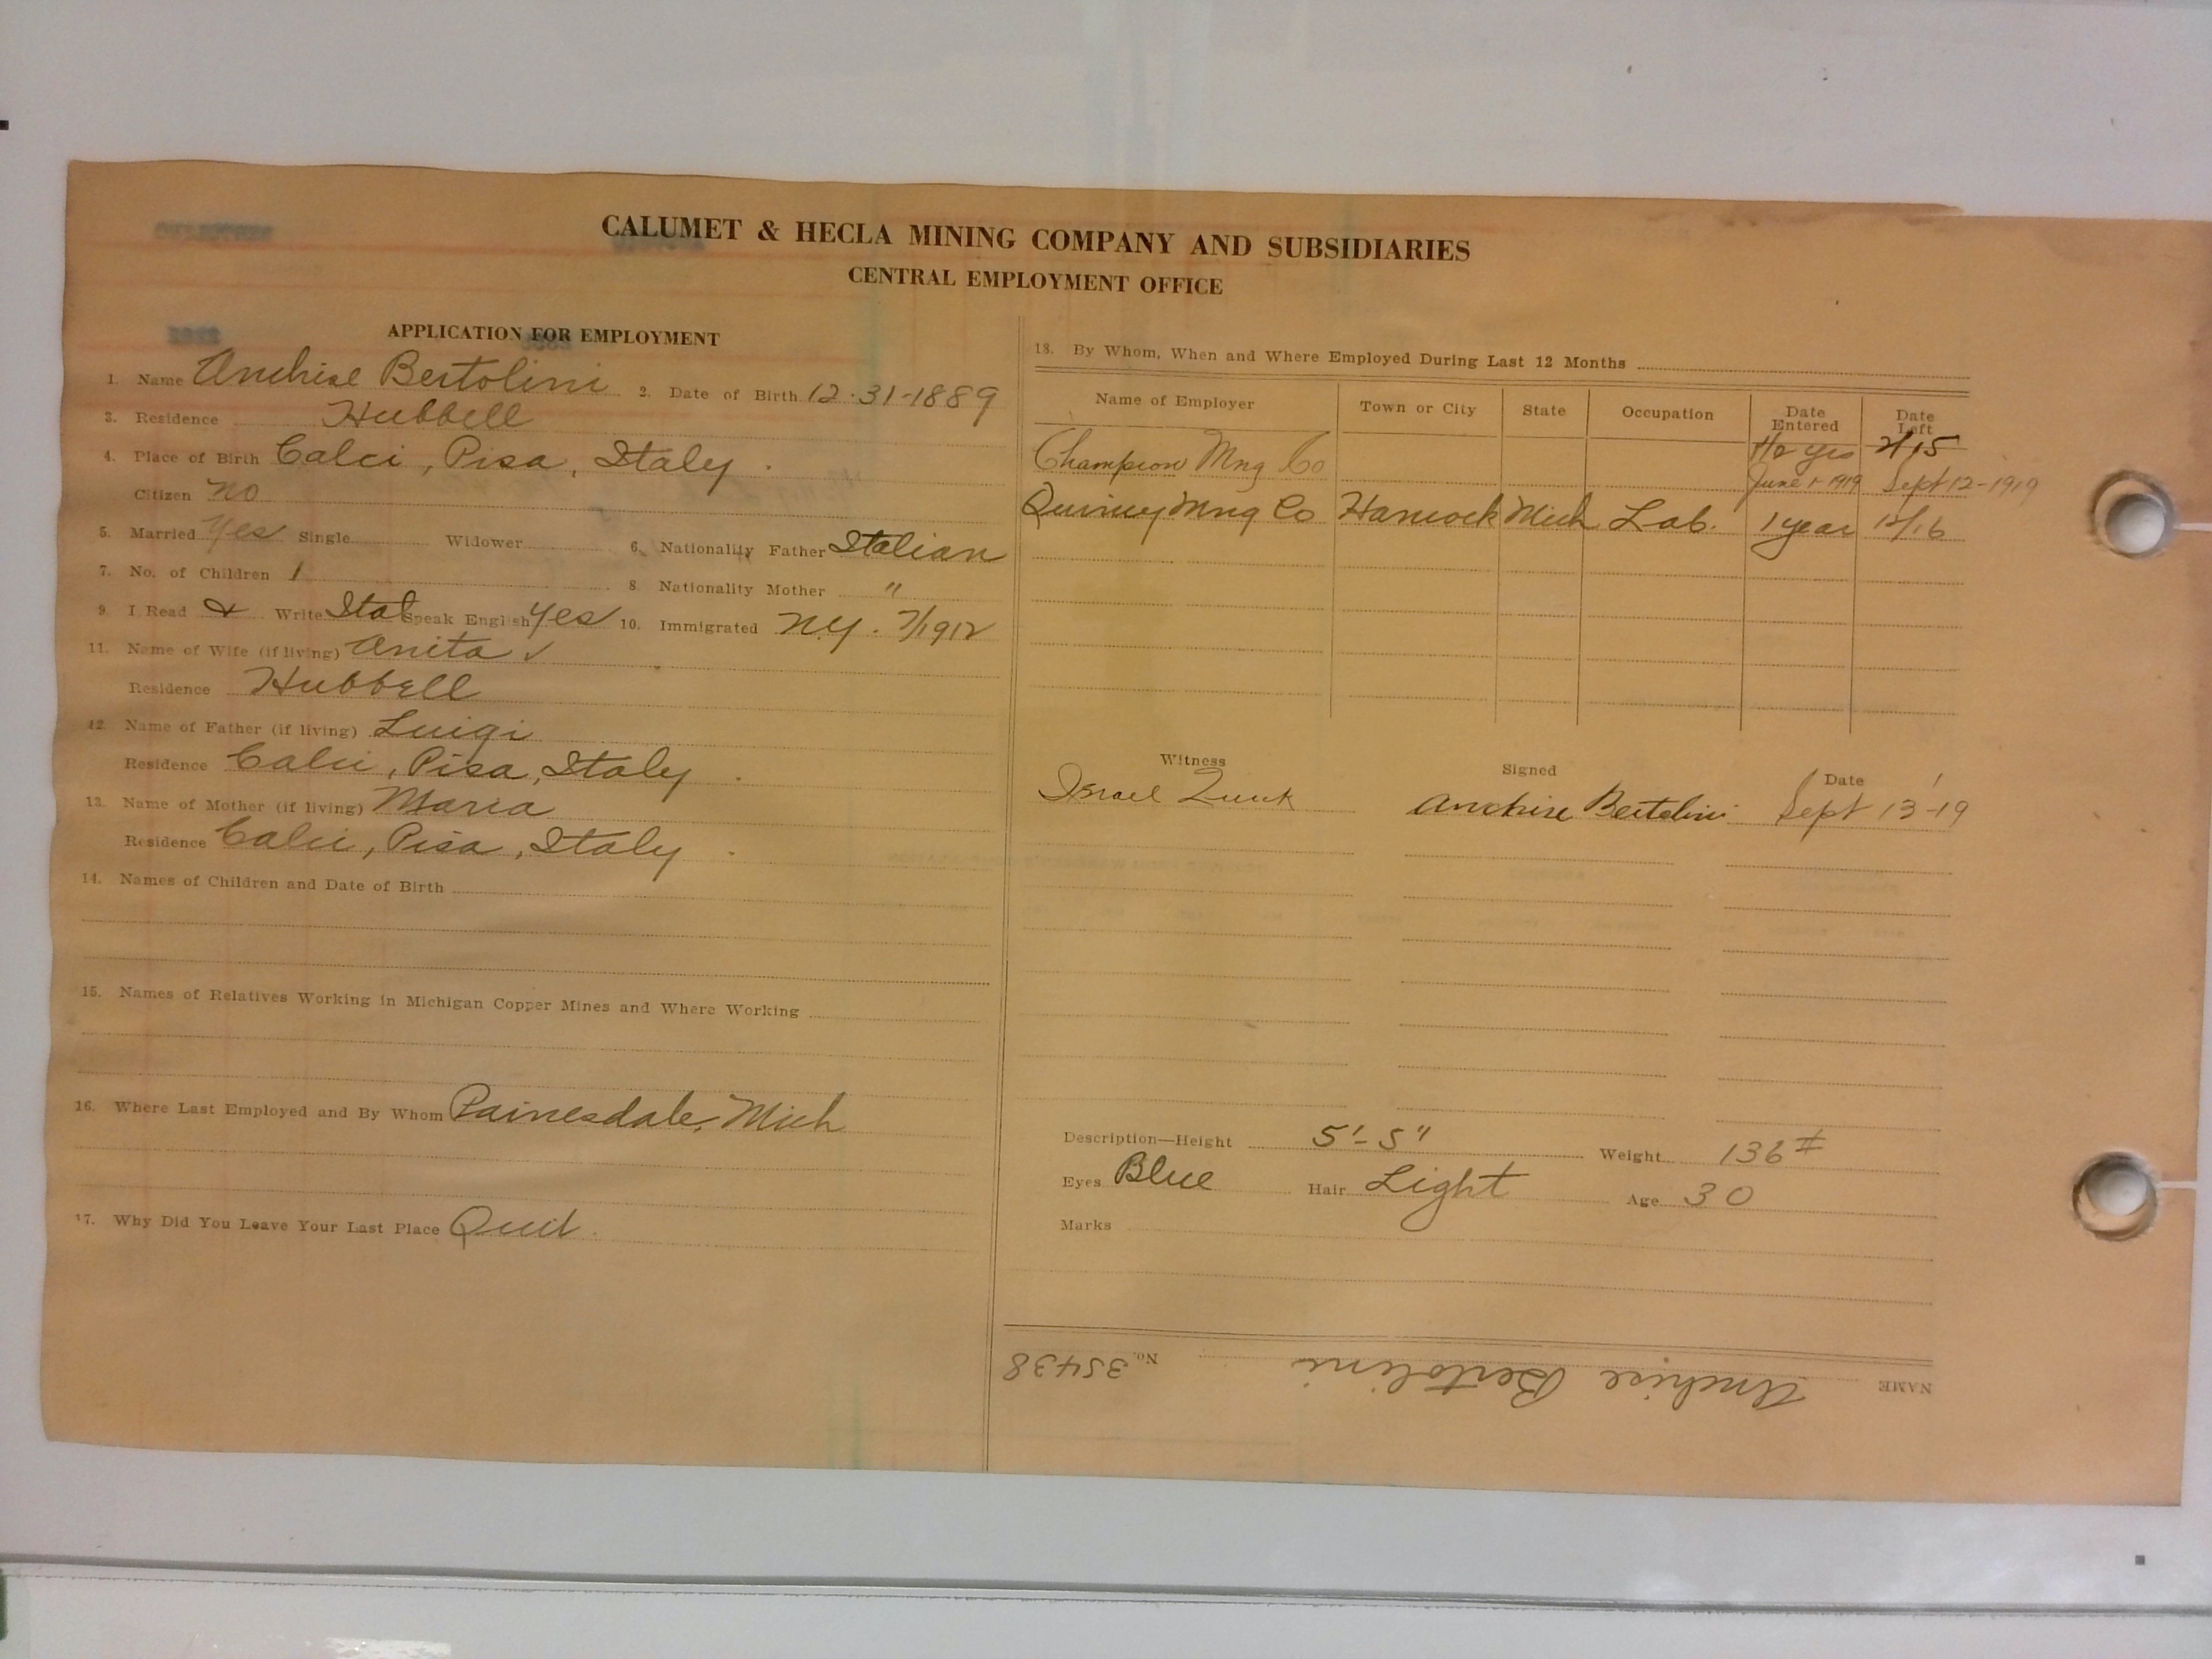 CALUMET & HECLA MINING COMPANY AND SUBSIDIARIES
CENTRAL EMPLOYMENT OFFICE
APPLICATION FOR EMPLOYMENT
1. Name Anchise Bertolini 2. Date of Birth 12-31-1889
3. Residence Hubbell
4. Place of Birth Calci, Pisa, Italy.
Citizen no
5. Married Yes Single Widower 6. Nationality Father Italian
7. No. of Children 1 8. Nationality Mother "
9. I Read & Write Ital Speak English Yes 10. Immigrated N.Y. 7/1912
11. Name of Wife (if living) Anita ✓
Residence Hubbell
12. Name of Father (if living) Luigi
Residence Calci, Pisa, Italy.
13. Name of Mother (if living) Maria
Residence Calci, Pisa, Italy.
14. Names of Children and Date of Birth
15. Names of Relatives Working in Michigan Copper Mines and Where Working
16. Where Last Employed and By Whom Painesdale, Mich
17. Why Did You Leave Your Last Place Quit.
18. By Whom, When and Where Employed During Last 12 Months
Name of Employer Town or City State Occupation Date Entered Date Left
Champion Mng Co June 1-1919 Sept 12-1919
Quincy Mng Co Hancock Mich Lab. 1 year 12/16
Witness Signed Date
Israel Anchise Bertolini Sept 13-19
Description—Height 5'-5" Weight 136#
Eyes Blue Hair Light Age 30
Marks
NAME Anchise Bertolini No. 35438